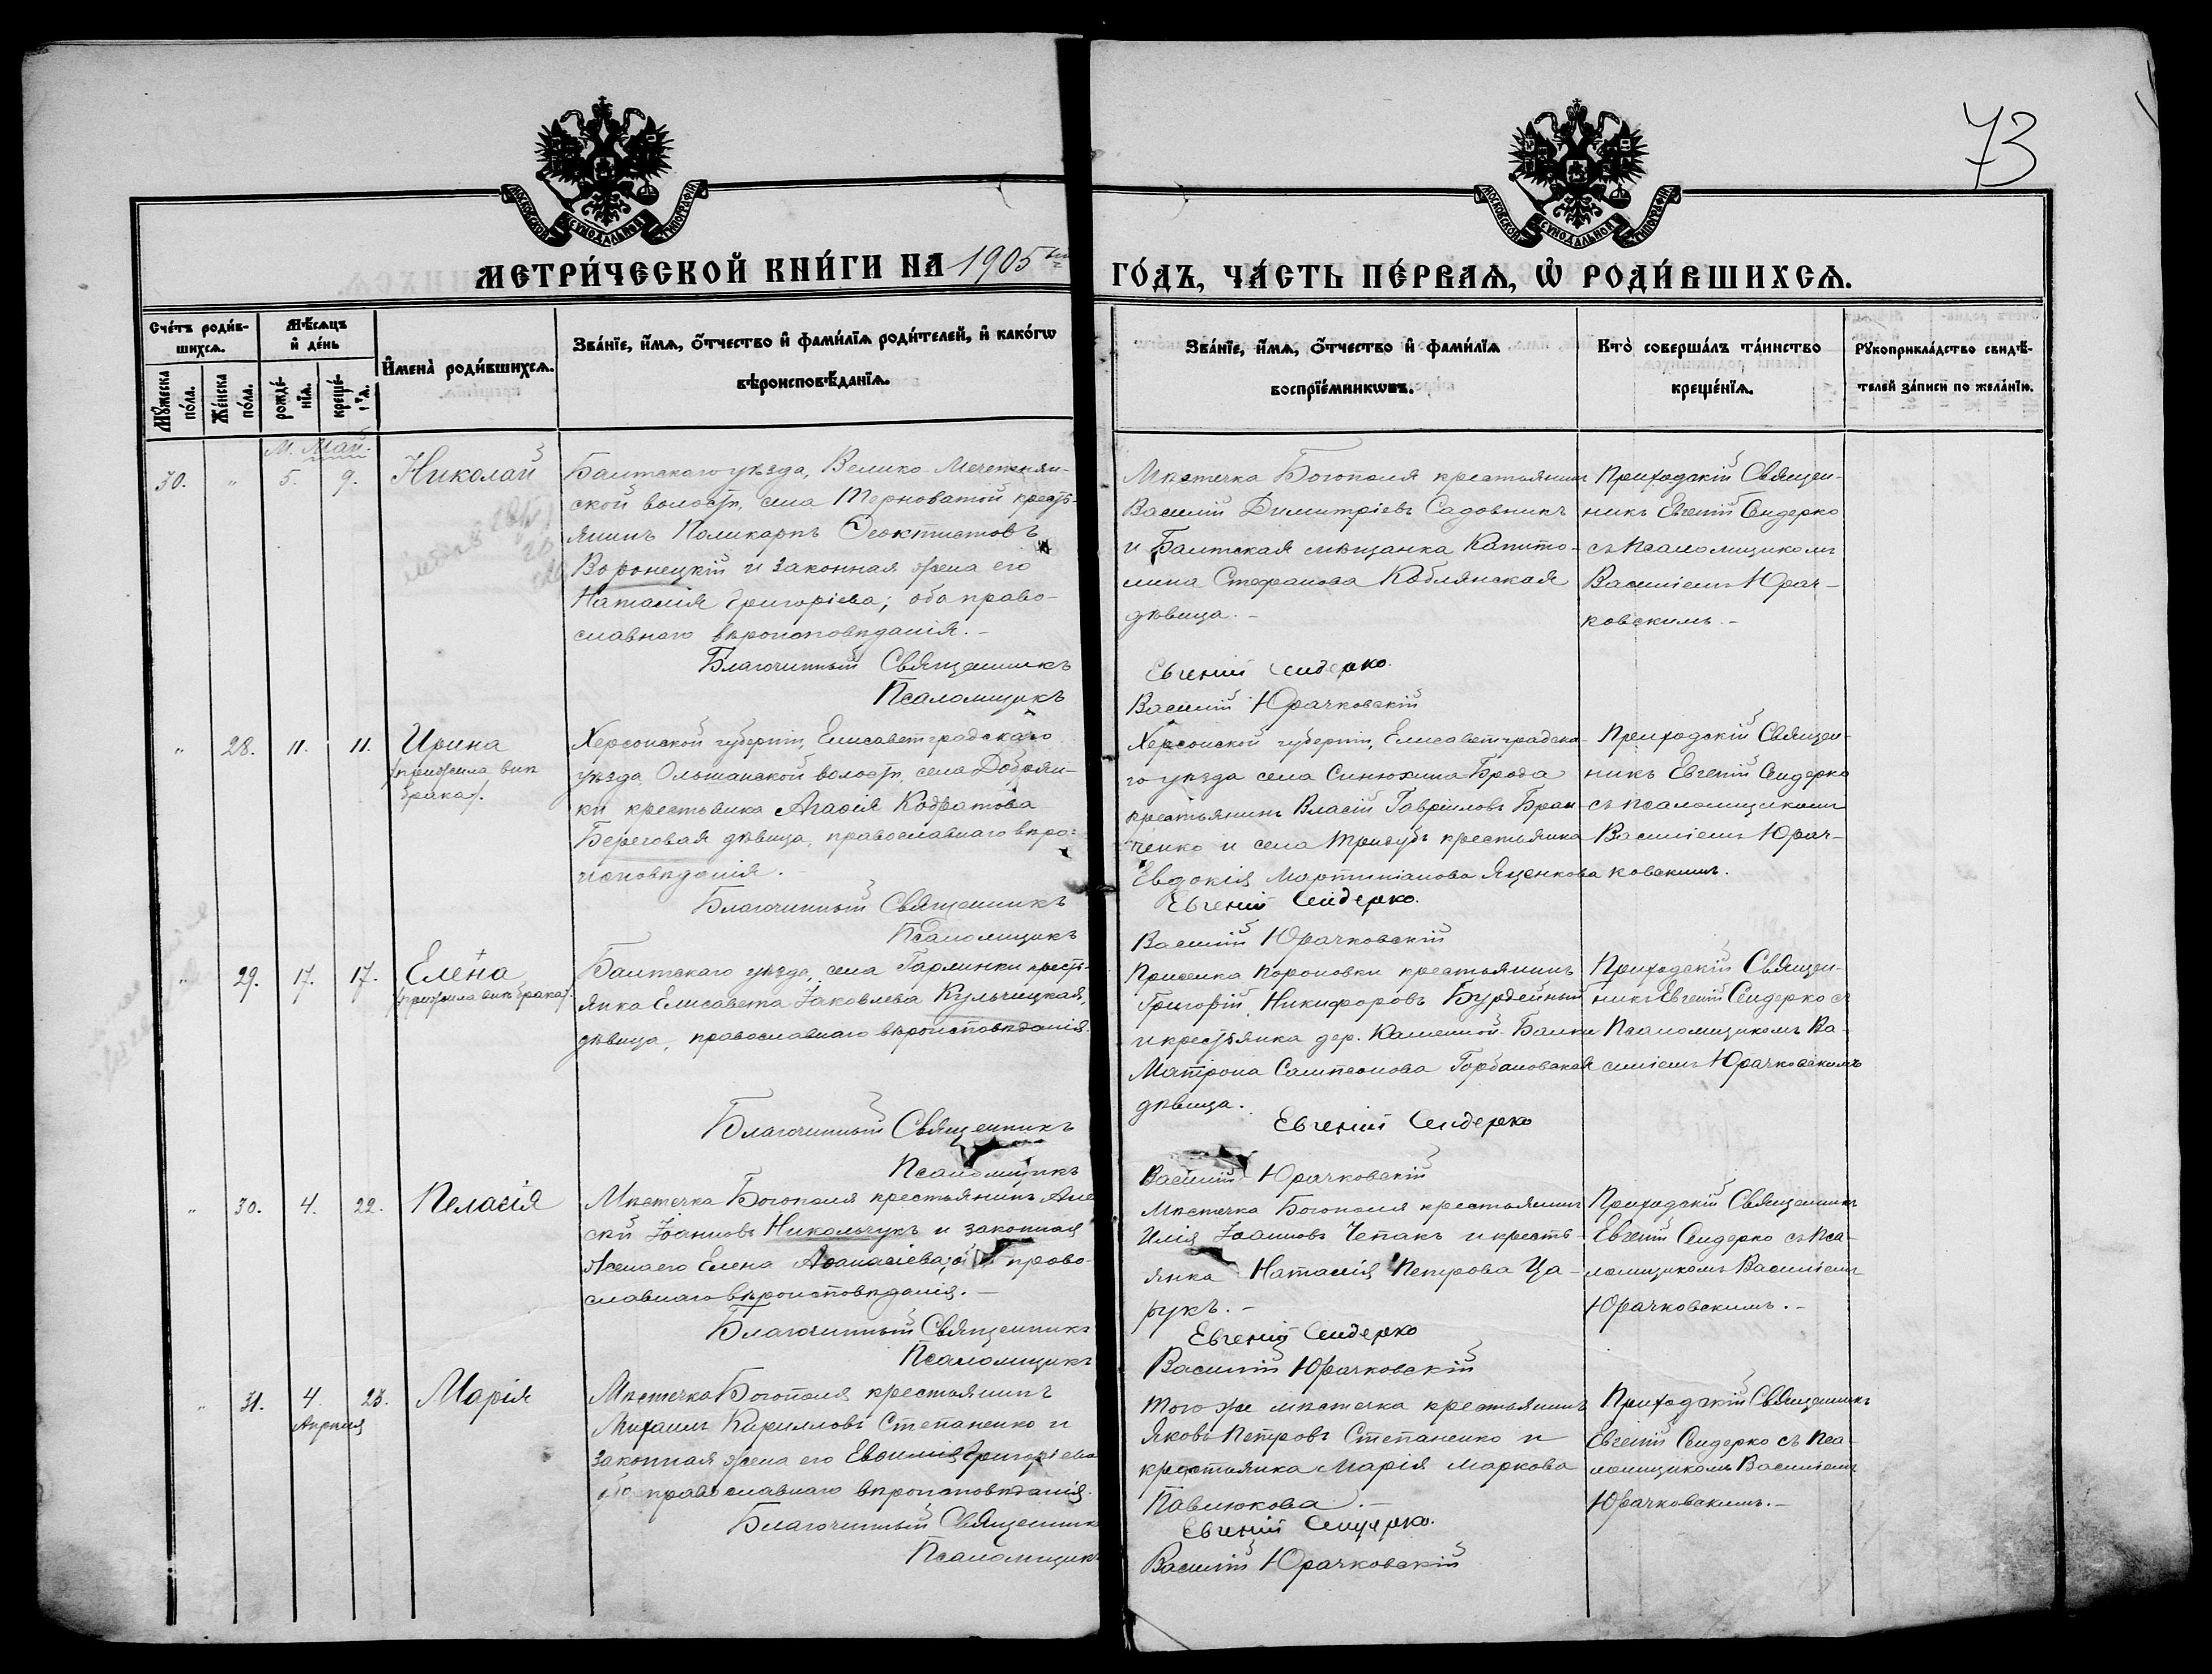 73
МОСКОВСКОЙ СУНОДАЛЬНОЙ ТИПОГРАФІИ
МОСКОВСКОЙ СУНОДАЛЬНОЙ ТИПОГРАФІИ
МЕТРИ́ЧЕСКОЙ КНИ́ГИ НА 1905 ый
ГО́ДЪ, ЧА́СТЬ ПЕ́РВАѦ, Ѿ РОДИ́ВШИХСѦ.
Сче́тъ роди́в-
шихсѧ.
Мꙋжеска по́ла.
Же́нска по́ла.
Мѣ́сѧцъ и҆ де́нь
рожде́-
нїѧ.
креще́-
нїѧ.
И҆мена̀ роди́вшихсѧ.
Зва́нїе, и҆́мѧ, ѻ҆́тчество и҆ фами́лїѧ роди́телей, и҆ како́гѡ
вѣроисповѣ́данїѧ.
Зва́нїе, и҆́мѧ, ѻ҆́тчество и҆ фами́лїѧ
воспрїе́мникѡвъ.
Кто̀ соверша́лъ та́инство
креще́нїѧ.
Рꙋкоприкла́дство свидѣ́-
телей за́писи по жела́нїю.
М. Май.
30. " 5. 9. Николай
Балтскаго уѣзда, Велико-Мечетнян-
ской волости, села Терноватой кресть-
янинъ Поликарпъ Ѳеоктистовъ
Воронецкій и законная жена его
Наталія Григоріева; оба право-
славнаго вѣроисповѣданія. –
Благочинный Священникъ
Псаломщикъ
Мѣстечка Богополя крестьянинъ
Василій Димитріевъ Садовникъ
и Балтская мѣщанка Капито-
лина Стефанова Коблянская
дѣвица. –
Евгеній Сендерко.
Василій Юрачковскій
Приходскій Священ-
никъ Евгеній Сендерко
съ Псаломщикомъ
Василіемъ Юрач-
ковскимъ. –
" 28. 11. 11. Ирина
(прижила внѣ
брака).
Херсонской губерніи, Елисаветградскаго
уѣзда Ольшанской волости, села Добрян-
ки крестьянка Агафія Кодратова
Береговая дѣвица, православнаго вѣро-
исповѣданія.
Благочинный Священникъ
Псаломщикъ
Херсонской губерніи, Елисаветградска-
го уѣзда села Синюхина-Брода
крестьянинъ Власій Гавріиловъ Бран-
ченко и села Тридубъ крестьянка
Евдокія Мартиніанова Яценкова
Евгеній Сендерко.
Василій Юрачковскій
Приходскій Священ-
никъ Евгеній Сендерко
съ псаломщикомъ
Василіемъ Юрач-
ковскимъ.
" 29. 17. 17. Елена
(прижила внѣ брака).
Балтскаго уѣзда, села Гарлинки кресть-
янка Елисавета Іаковлева Кульчицкая,
дѣвица, православнаго вѣроисповѣданія.
Благочинный Священникъ
Псаломщикъ
Приселка Пороновки крестьянинъ
Григорій Никифоровъ Бурдейный
и крестьянка дер. Каменной-Балки
Матрона Сампсонова Горбановская
дѣвица.
Евгеній Сендерко
Василій Юрачковскій
Приходскій Священ-
никъ Евгеній Сендерко съ
Псаломщикомъ Ва-
силіемъ Юрачковскимъ
" 30. 4. 22. Пелагія
Мѣстечка Богополя крестьянинъ Але
ский Іоанновъ Никольчукъ и законная
жена его Елена Аѳанасіева; право-
славнаго вѣроисповѣданія. –
Благочинный Священникъ
Псаломщикъ
Мѣстечка Богополя крестьянинъ
Илія Іоанновъ Чепакъ и кресть-
янка Наталія Петрова Ца-
рукъ. –
Евгеній Сендерко
Василій Юрачковскій
Приходскій Священникъ
Евгеній Сендерко съ Пса-
ломщикомъ Василіемъ
Юрачковскимъ. –
" 31. 4. 23. Марія
Апрѣля
Мѣстечка Богополя крестьянинъ
Михаилъ Кирилловъ Степаненко и
законная жена его Евѳимія Григоріева
оба православнаго вѣроисповѣданія.
Благочинный Священникъ
Псаломщикъ
Того же мѣстечка крестьянинъ
Яковъ Петровъ Степаненко и
крестьянка Марія Маркова
Павлюкова. –
Евгеній Сендерко.
Василій Юрачковскій
Приходскій Священникъ
Евгеній Сендерко съ Пса-
ломщикомъ Василіемъ
Юрачковскимъ. –